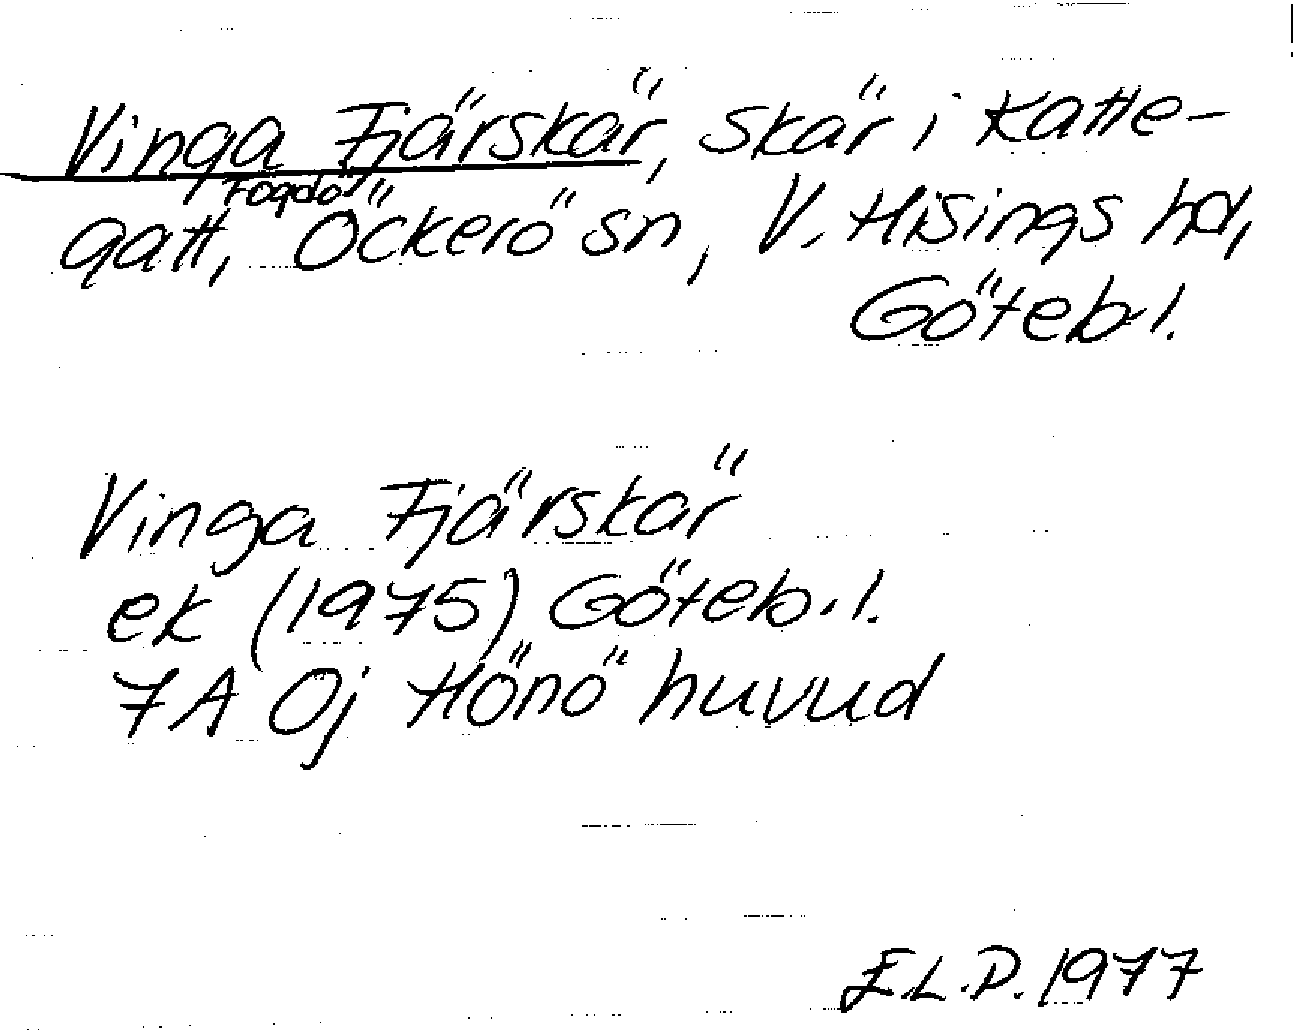 Vinga Fjärskär, skär i Katte-
Fogdö
gatt, Öckerö sn, V. Hisings hd,
Göteb. l.
Vinga Fjärskär
ek (1975) Göteb. l.
7A Oj Hönö huvud
E.L.P. 1977